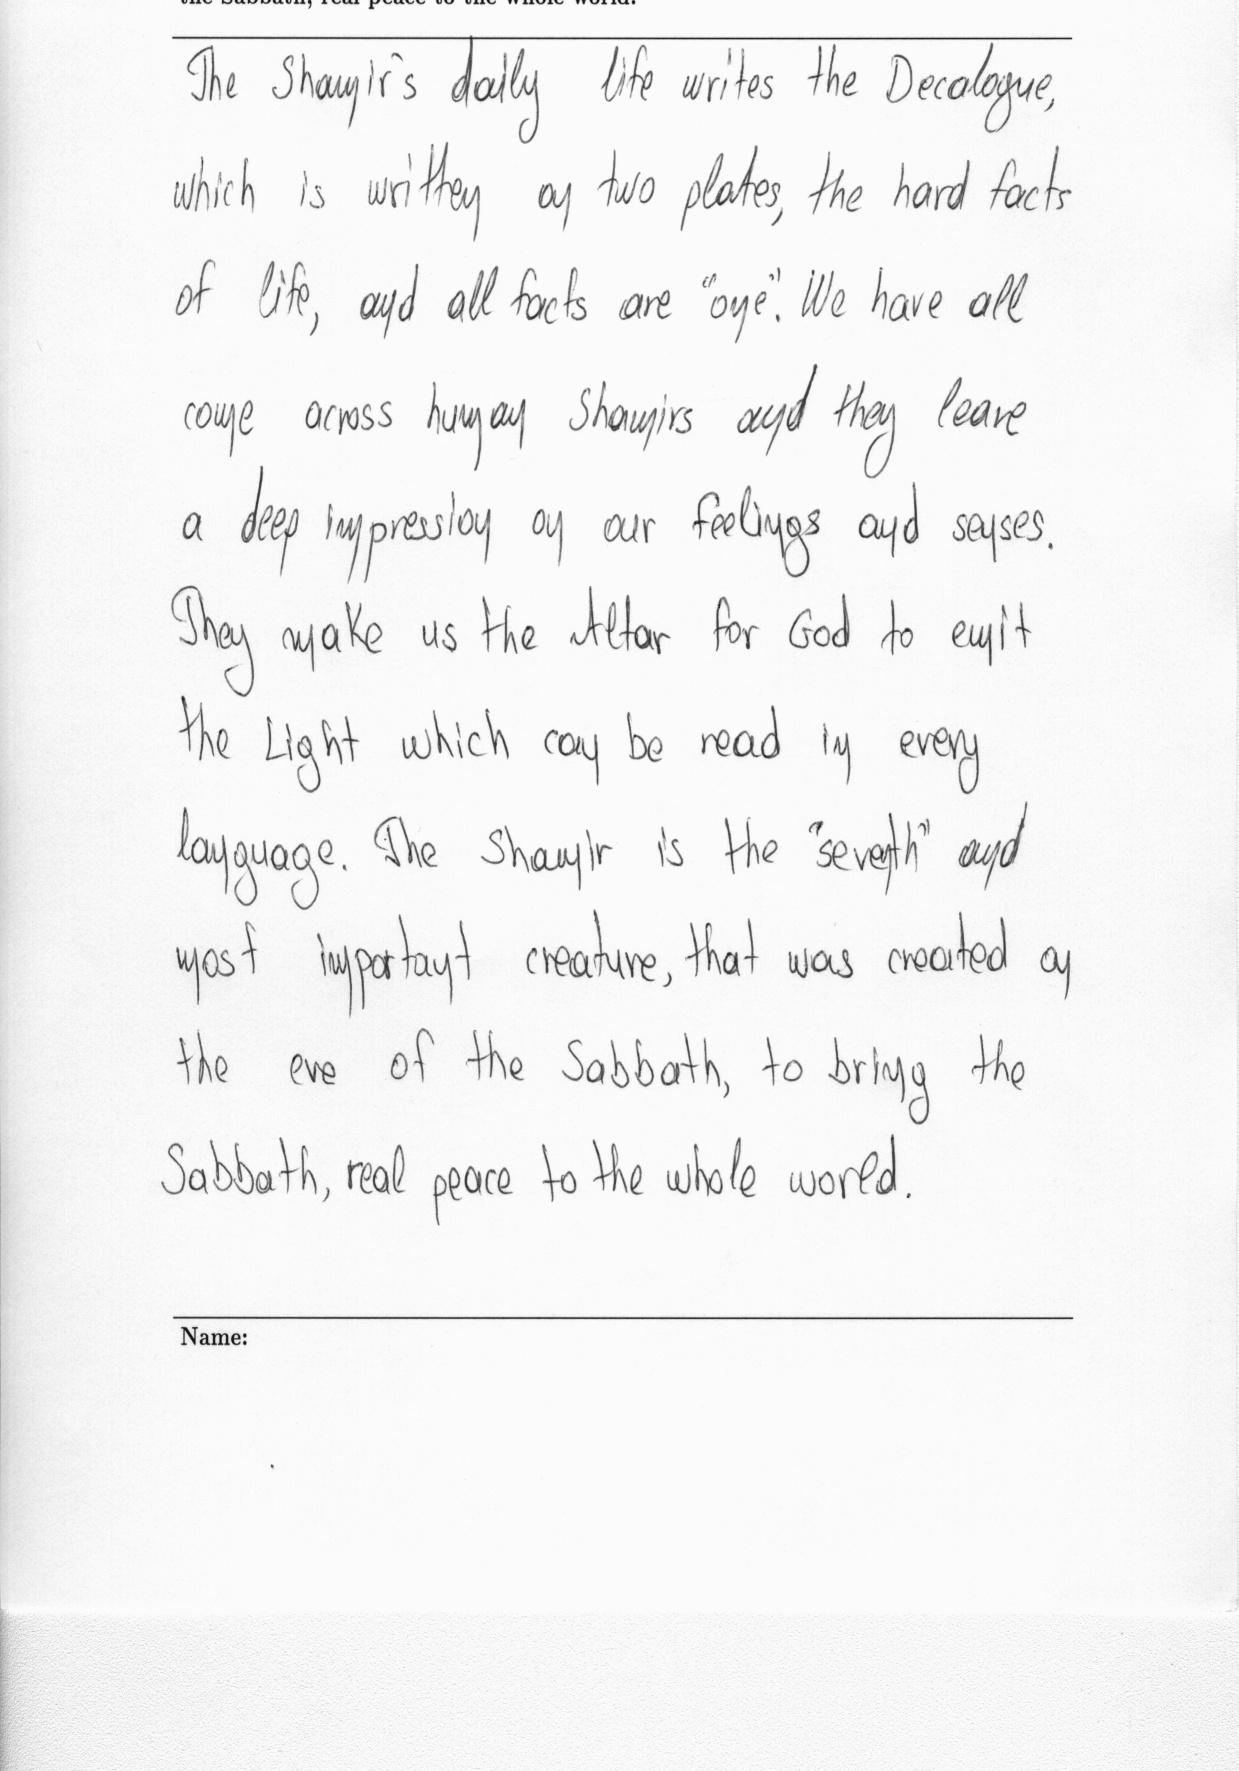 the Sabbath, real peace to the whole world.
The Shamir's daily life writes the Decalogue,
which is written on two plates, the hard facts
of life, and all facts are "one". We have all
come across human Shamirs and they leave
a deep impression on our feelings and senses.
They make us the Altar for God to emit
the Light which can be read in every
language. The Shamir is the "seventh" and
most important creature, that was created on
the eve of the Sabbath, to bring the
Sabbath, real peace to the whole world.
Name: